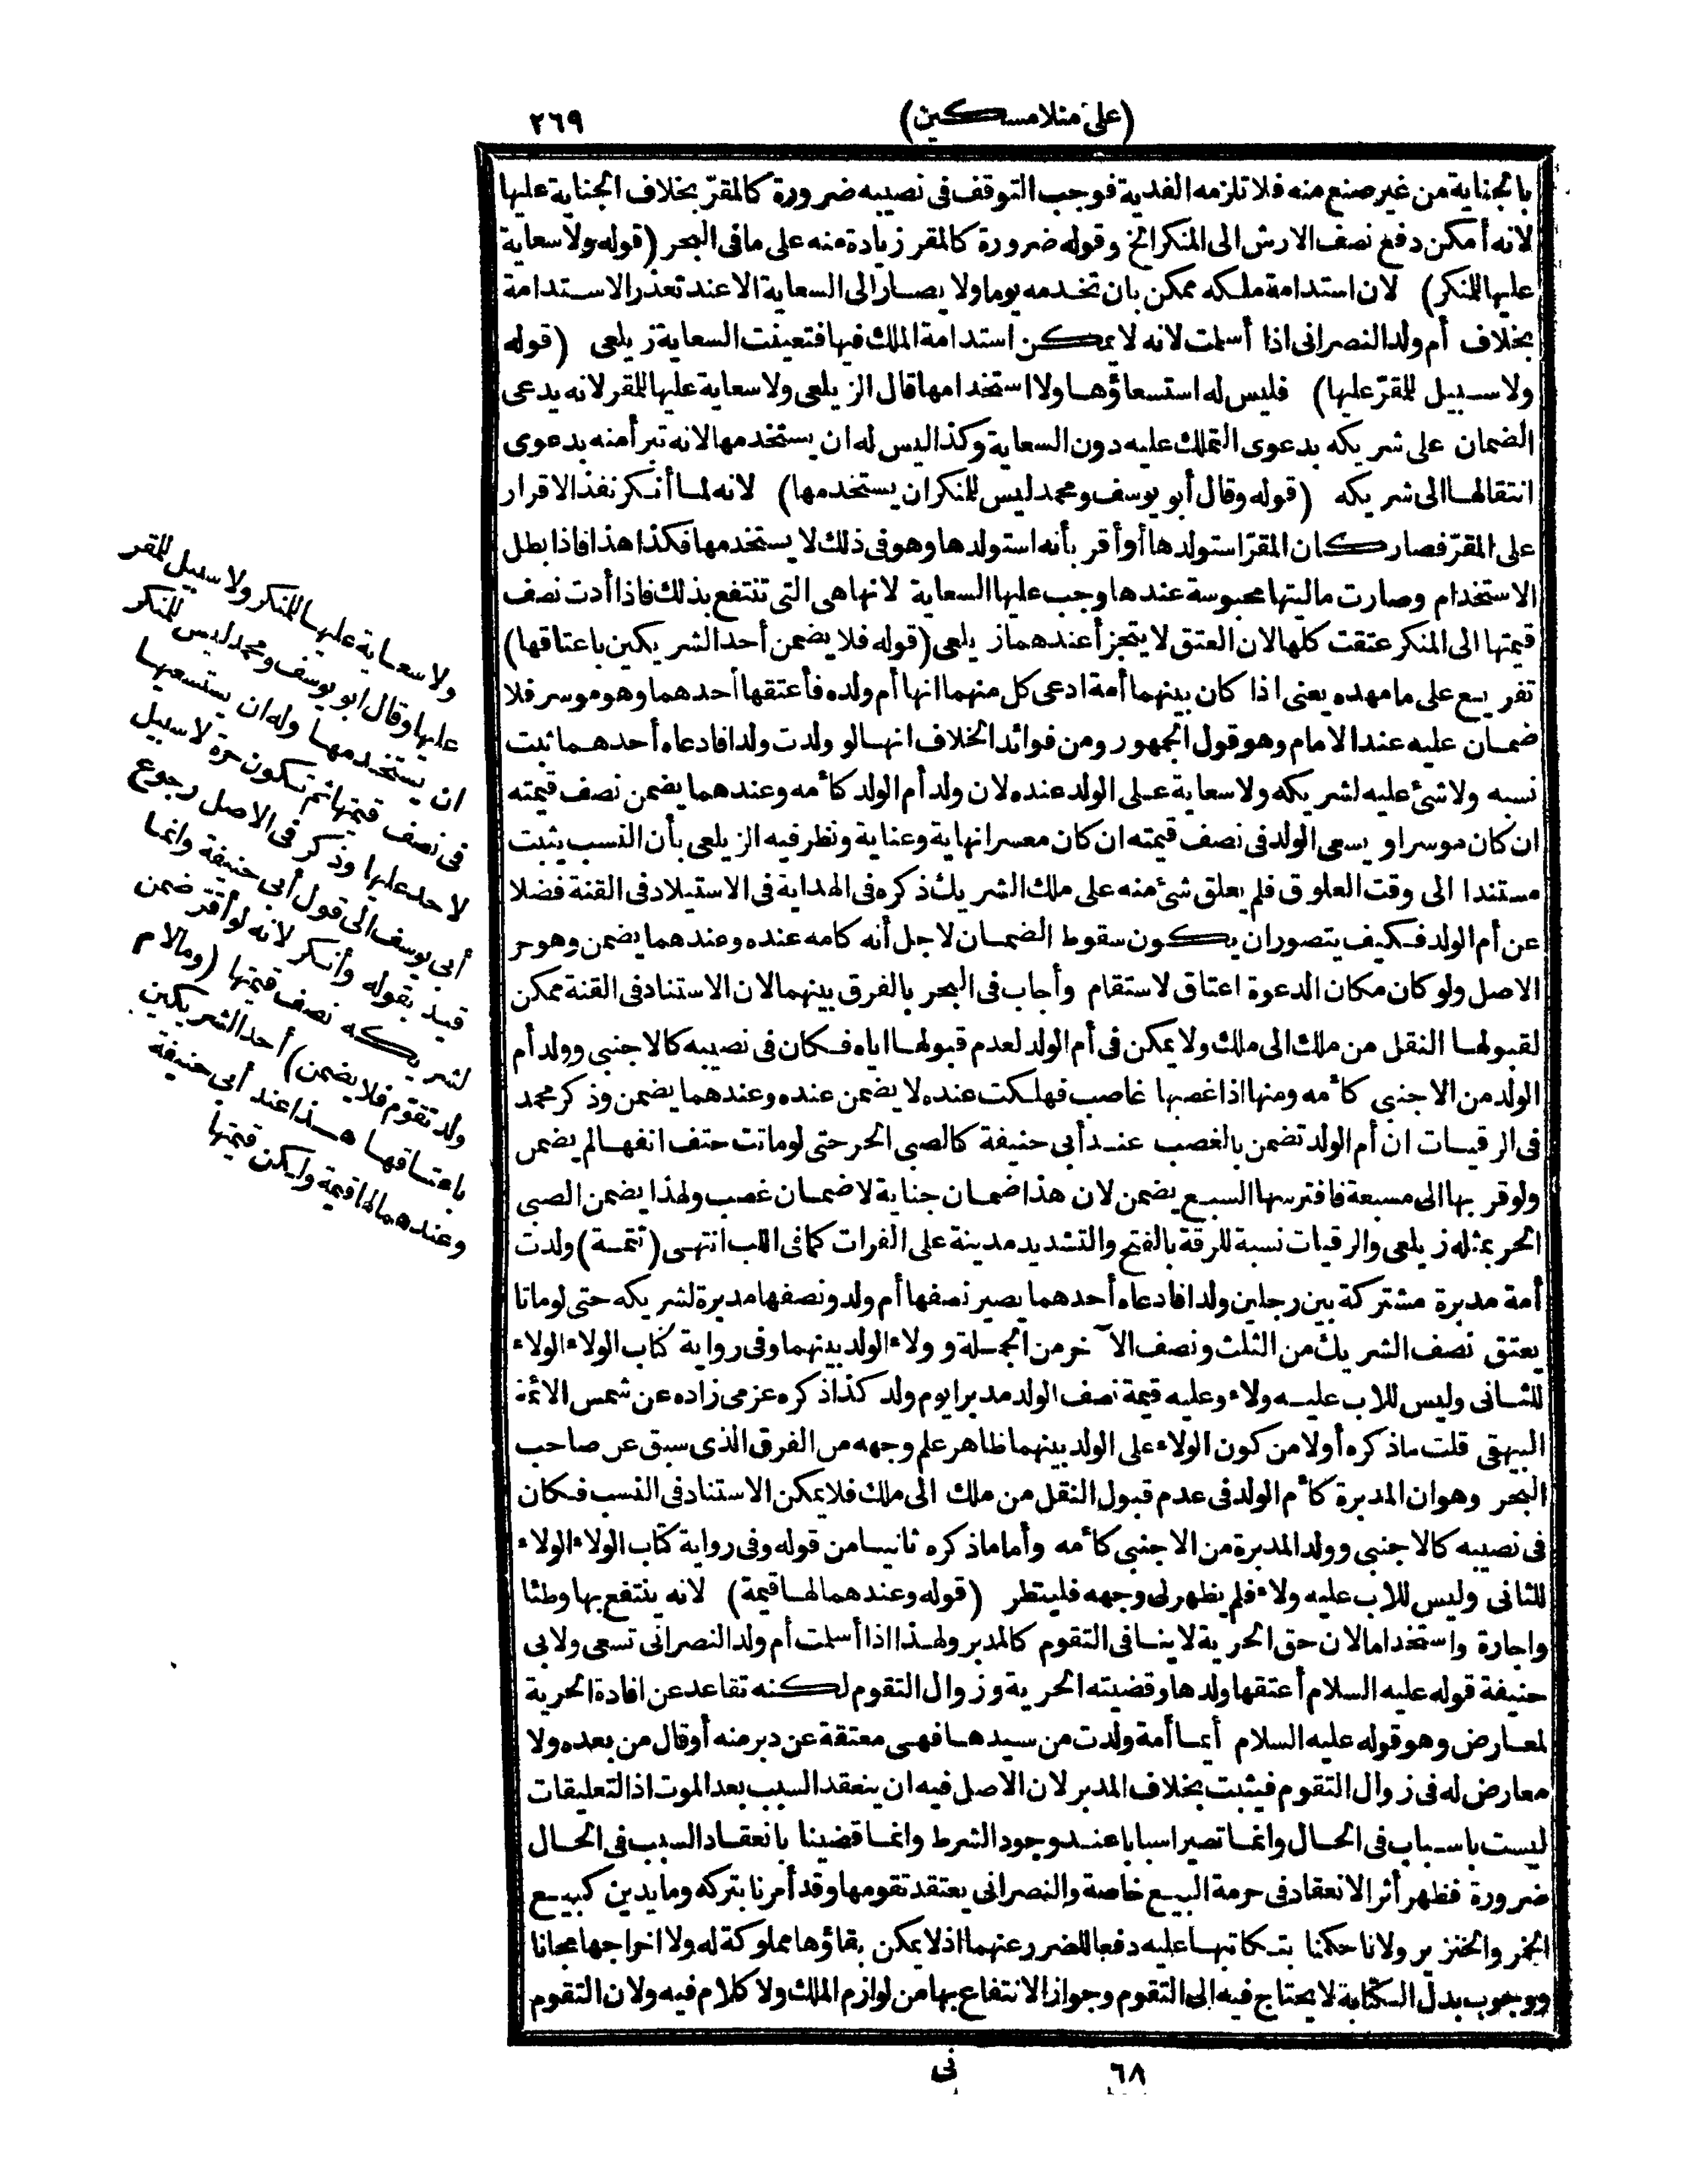 (على منلا مسكين) ٢٦٩
بالجناية من غير صنع منه فلا تلزمه الفدية فوجب التوقف فى نصيبه ضرورة كالمقرّ بخلاف الجناية عليها
لانه أمكن دفع نصف الارش الى المنكر الخ وقوله ضرورة كالمقر زيادة منه على ما فى البحر (قوله ولا سعاية
عليها للمنكر) لان استدامة ملكه ممكن بان تخدمه يوما ولا يصار الى السعاية الا عند تعذر الاستدامة
بخلاف أم ولد النصرانى اذا أسلمت لانه لا يمكن استدامة الملك فيها فتعينت السعاية زيلعى (قوله
ولا سبيل للمقرّ عليها) فليس له استسعاؤها ولا استخدامها قال الزيلعى ولا سعاية عليها للمقر لانه يدعى
الضمان على شريكه بدعوى التملك عليه دون السعاية وكذا ليس له ان يستخدمها لانه تبرأ منه بدعوى
انتقالها الى شريكه (قوله وقال أبو يوسف ومحمد ليس للمنكر ان يستخدمها) لانه لما أنكر نفذ الاقرار
على المقرّ فصار كان المقرّ استولدها أو أقر بأنه استولدها وهو فى ذلك لا يستخدمها فكذا هذا فاذا بطل
الاستخدام وصارت ماليتها محبوسة عندها وجب عليها السعاية لانها هى التى تنتفع بذلك فاذا أدت نصف
قيمتها الى المنكر عتقت كلها لان العتق لا يتجزأ عندهما زيلعى (قوله فلا يضمن أحد الشريكين باعتاقها)
تفريع على ما مهده يعنى اذا كان بينهما أمة ادعى كل منهما انها أم ولده فأعتقها أحدهما وهو موسر فلا
ضمان عليه عند الامام وهو قول الجمهور ومن فوائد الخلاف انها لو ولدت ولدا فادعاه أحدهما ثبت
نسبه ولا شئ عليه لشريكه ولا سعاية على الولد عنده لان ولد أم الولد كأمه وعندهما يضمن نصف قيمته
ان كان موسرا و يسعى الولد فى نصف قيمته ان كان معسرا نهاية وعناية ونظر فيه الزيلعى بأن النسب يثبت
مستندا الى وقت العلوق فلم يعلق شئ منه على ملك الشريك ذكره فى الهداية فى الاستيلاد فى القنة فضلا
عن أم الولد فكيف يتصور ان يكون سقوط الضمان لاجل أنه كامه عنده وعندهما يضمن وهو حر
الاصل ولو كان مكان الدعوة اعتاق لاستقام وأجاب فى البحر بالفرق بينهما لان الاستناد فى القنة ممكن
لقبولها النقل من ملك الى ملك ولا يمكن فى أم الولد لعدم قبولها اياه فكان فى نصيبه كالاجنبى وولد أم
الولد من الاجنبى كأمه ومنها اذا غصبها غاصب فهلكت عنده لا يضمن عنده وعندهما يضمن وذكر محمد
فى الرقيات ان أم الولد تضمن بالغصب عند أبى حنيفة كالصبى الحر حتى لو ماتت حتف انفها لم يضمن
ولو قربها الى مسبعة فافترسها السبع يضمن لان هذا ضمان جناية لا ضمان غصب ولهذا يضمن الصبى
الحر بمثله زيلعى والرقيات نسبة للرقة بالفتح والتشديد مدينة على الفرات كما فى اللب انتهى (تتمة) ولدت
أمة مدبرة مشتركة بين رجلين ولدا فادعاه أحدهما يصير نصفها أم ولد ونصفها مدبرة لشريكه حتى لو ماتا
يعتق نصف الشريك من الثلث ونصف الآخر من الجملة وولاء الولد بينهما وفى رواية كتاب الولاء الولاء
للثانى وليس للاب عليه ولاء وعليه قيمة نصف الولد مدبرا يوم ولد كذا ذكره عزمى زاده عن شمس الائمة
البيهقى قلت ما ذكره أولا من كون الولاء على الولد بينهما ظاهر علم وجهه من الفرق الذى سبق عن صاحب
البحر وهو ان المدبرة كأم الولد فى عدم قبول النقل من ملك الى ملك فلا يمكن الاستناد فى النسب فكان
فى نصيبه كالاجنبى وولد المدبرة من الاجنبى كأمه وأما ما ذكره ثانيا من قوله وفى رواية كتاب الولاء الولاء
للثانى وليس للاب عليه ولاء فلم يظهر لى وجهه فلينظر (قوله وعندهما لها قيمة) لانه ينتفع بها وطئا
واجارة واستخداما لان حق الحرية لا ينافى التقوم كالمدبر ولهذا اذا أسلمت أم ولد النصرانى تسعى ولابى
حنيفة قوله عليه السلام أعتقها ولدها وقضيته الحرية وزوال التقوم لكنه تقاعد عن افادة الحرية
لمعارض وهو قوله عليه السلام أيما أمة ولدت من سيدها فهى معتقة عن دبر منه أو قال من بعده ولا
معارض له فى زوال التقوم فيثبت بخلاف المدبر لان الاصل فيه ان ينعقد السبب بعد الموت اذ التعليقات
ليست باسباب فى الحال وانما تصير اسبابا عند وجود الشرط وانما قضينا بانعقاد السبب فى الحال
ضرورة فظهر أثر الانعقاد فى حرمة البيع خاصة والنصرانى يعتقد تقومها وقد أمرنا بتركه وما يدين كبيع
الخمر والخنزير ولانا حكمنا بتكاتبها عليه دفعا للضرر عنهما اذ لا يمكن بقاؤها مملوكة له ولا اخراجها مجانا
ووجوب بدل الكتابة لا يحتاج فيه الى التقوم وجواز الانتفاع بها من لوازم الملك ولا كلام فيه ولان التقوم
ولا سعاية عليها للمنكر ولا سبيل للمقر
عليها وقال ابو يوسف ومحمد ليس للمنكر
ان يستخدمها وله ان يستسعيها
فى نصف قيمتها ثم تكون حرة لا سبيل
لاحد عليها وذكر فى الاصل رجوع
أبى يوسف الى قول أبى حنيفة وانما
قيد بقوله وأنكر لانه لو أقر ضمن
لشريكه نصف قيمتها (وما لام
ولد تقوّم فلا يضمن) أحد الشريكين
باعتاقها هذا عند أبى حنيفة
وعندهما لها قيمة ولكن قيمتها
٦٨ نى